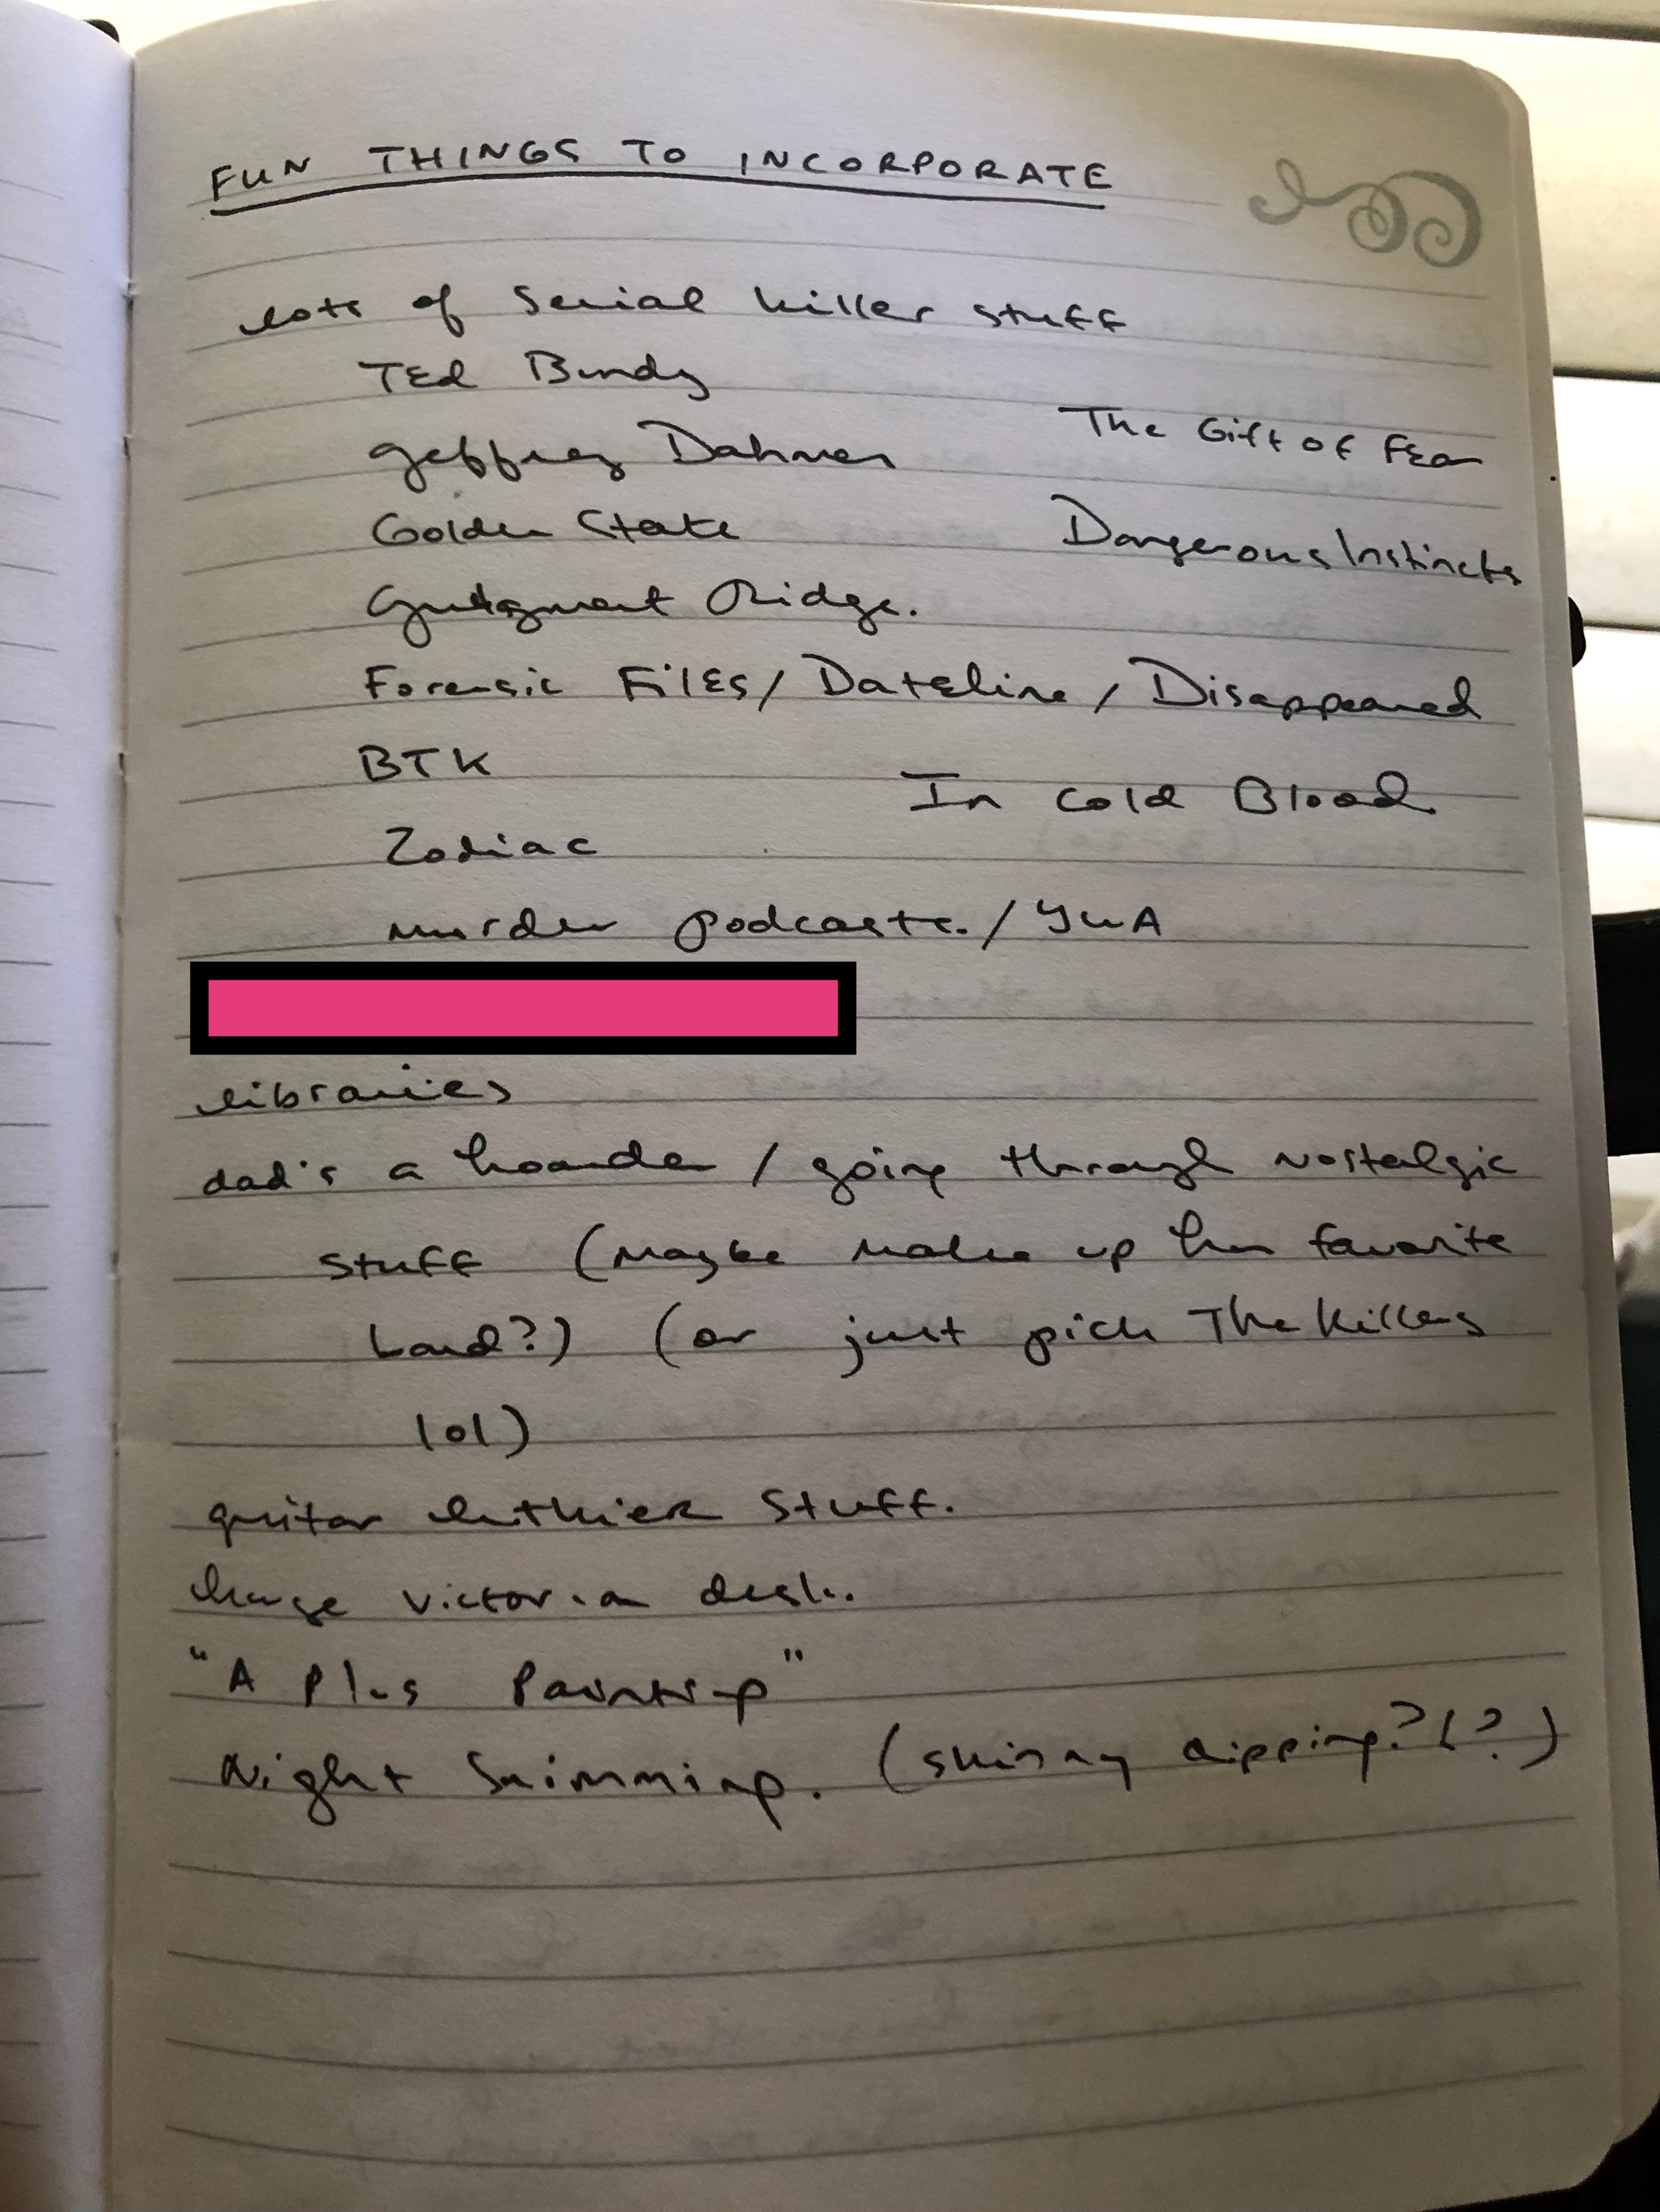 FUN THINGS TO INCORPORATE
lots of serial killer stuff
Ted Bundy
Jeffrey Dahmer
The Gift of Fear
Golden State
Dangerous Instincts
Judgment Ridge.
Forensic Files / Dateline / Disappeared
BTK
In Cold Blood
Zodiac
murder podcasts. /
libraries
dad's a hoarder / going through nostalgic
stuff (maybe make up her favorite
band?) (or just pick The Killers
lol)
guitar luthier stuff.
huge victorian desk.
"A Plus Painting"
Night Swimming. (skinny dipping? (?)